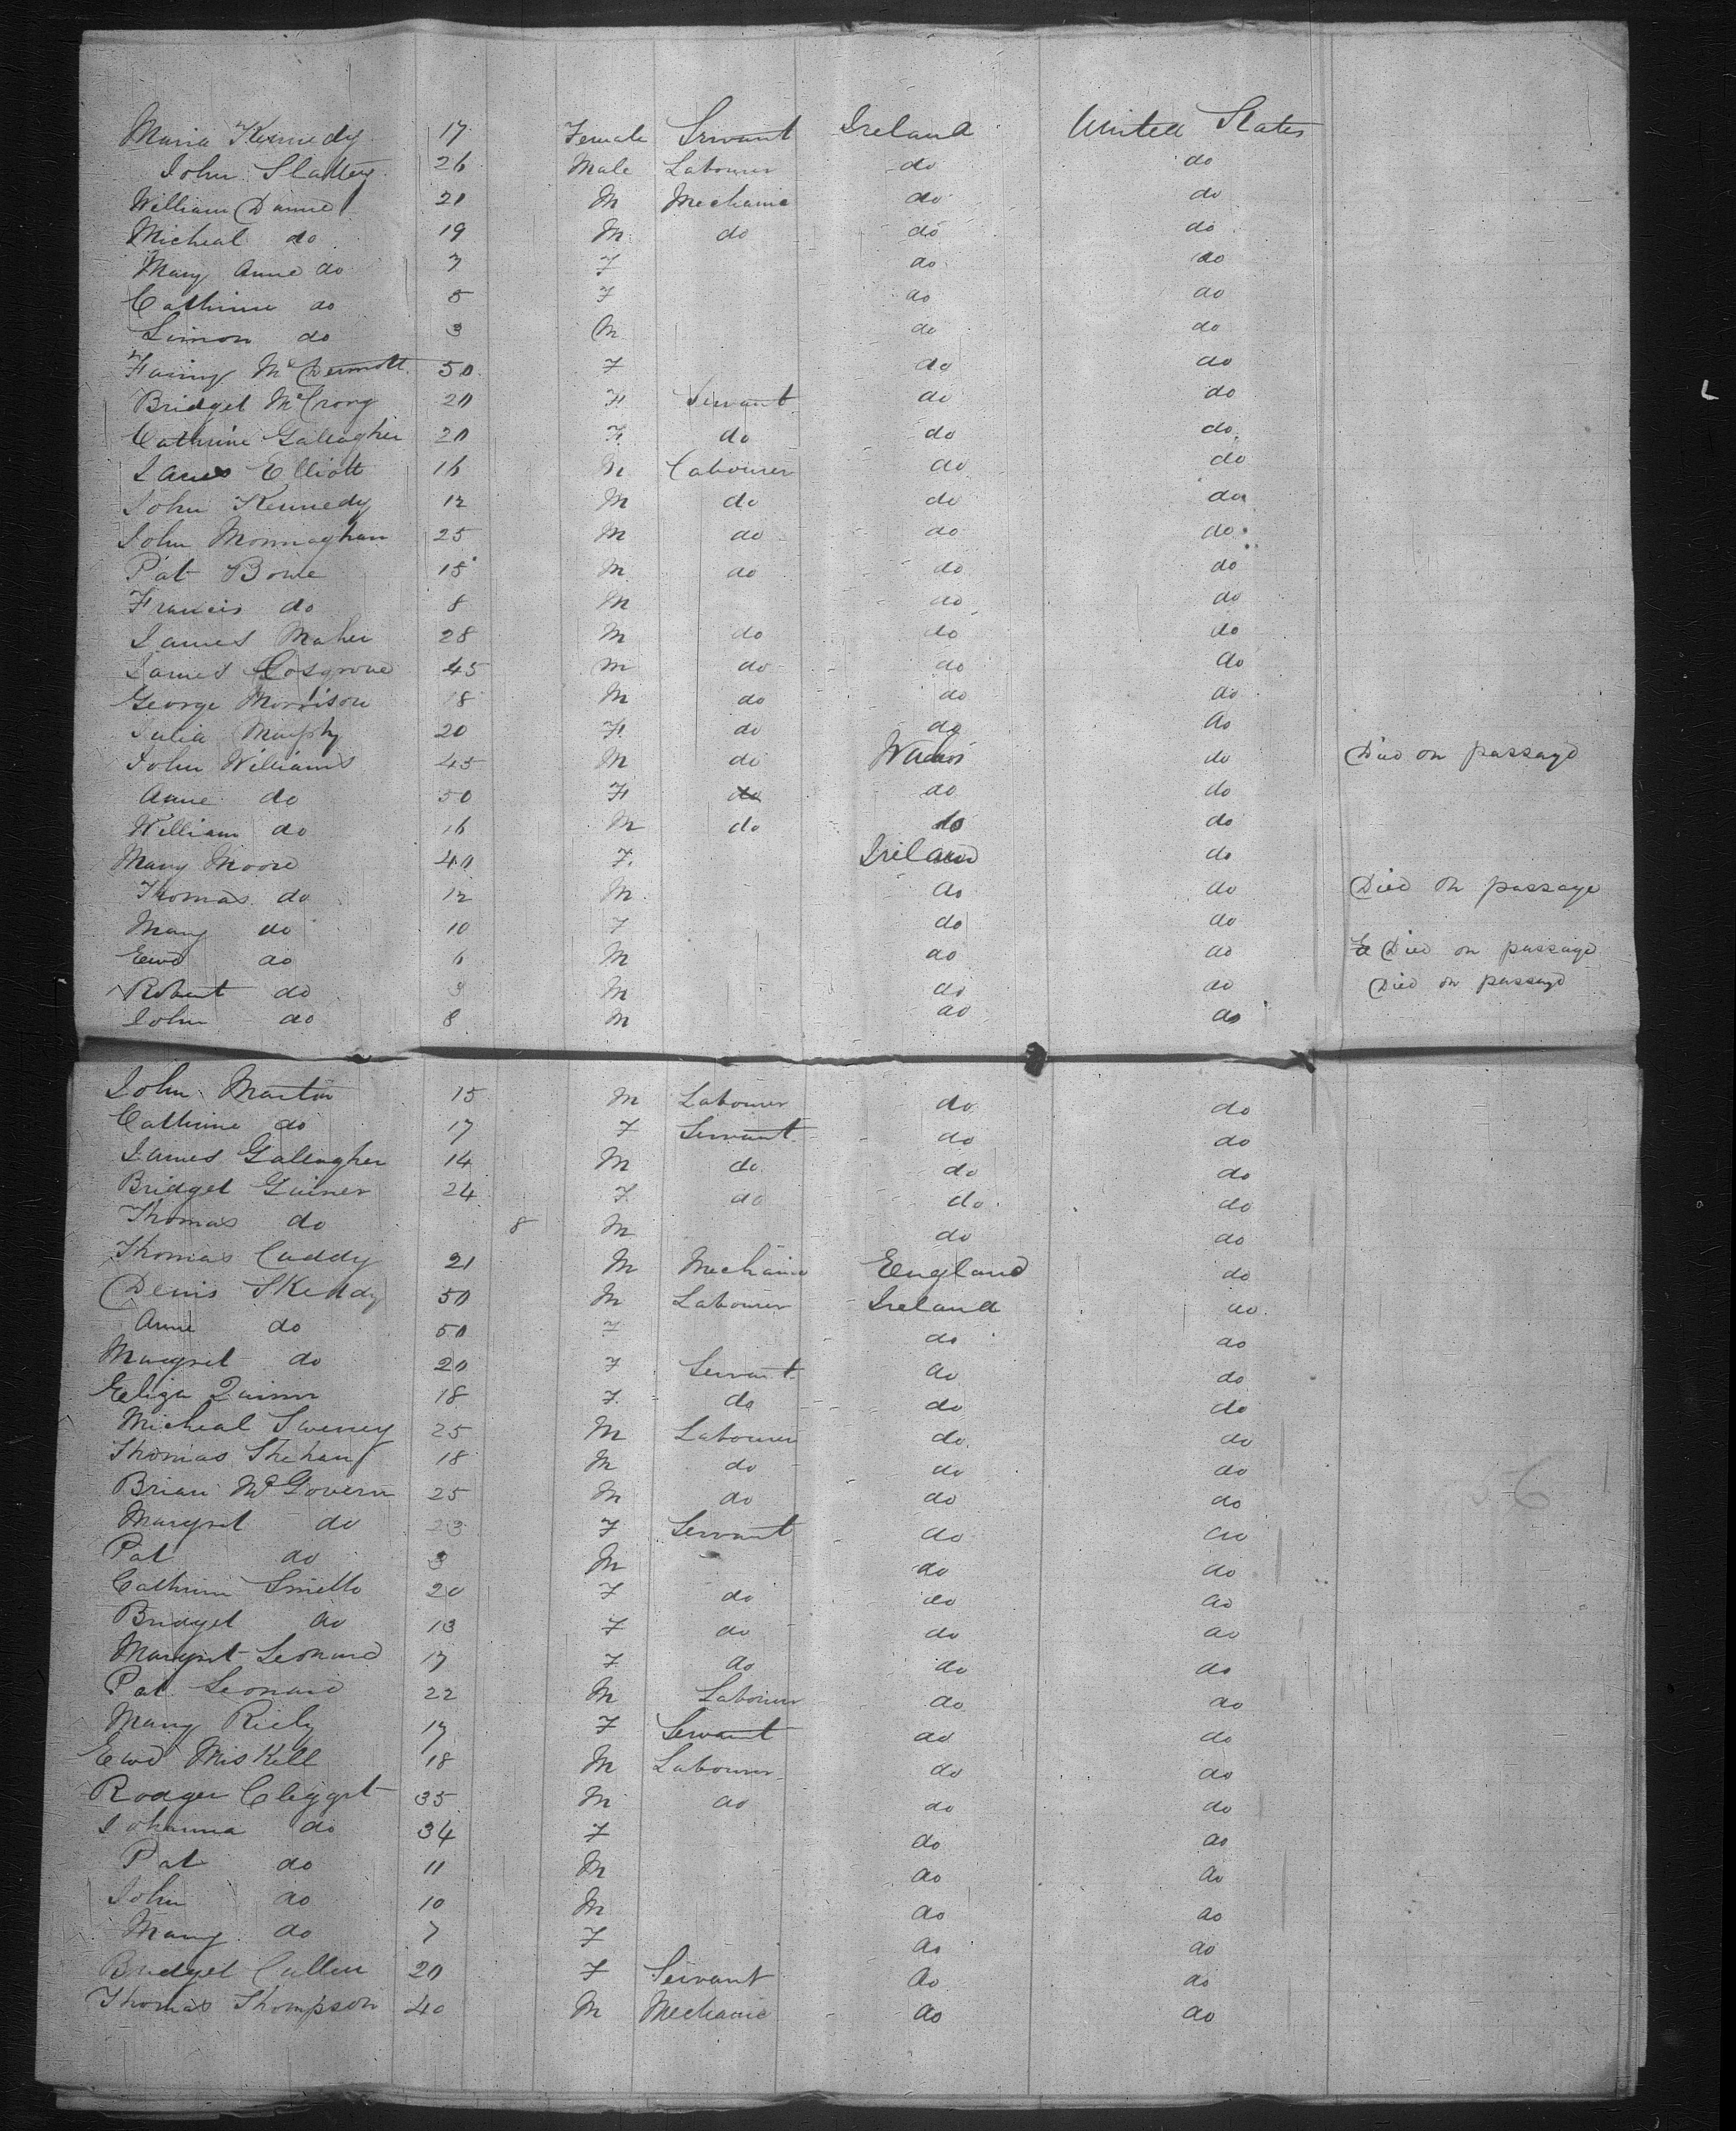 Maria Kennedy 17 Female Servant Ireland United States
John Slattery 26 Male Labourer do do
William Dunne 21 M Mechanic do do
Micheal do 19 M do do do
Mary Anne do 7 F do do
Cathrine do 5 F do do
Simon do 3 M do do
Fanny McDermott 50 F do do
Bridget McCrory 20 F Servant do do
Cathrine Gallagher 20 F do do do
James Elliott 16 M Labourer do do
John Kennedy 12 M do do do
John Monnaghan 25 M do do do
Pat Bowe 15 M do do do
Francis do 8 M do do
James Maher 28 M do do do
James Cosgrove 45 M do do do
George Morrison 18 M do do do
Julia Murphy 20 F do do do
John Williams 45 M do Wales do Died on passage
Anne do 50 F do do do
William do 16 M do do do
Mary Moore 40 F Ireland do
Thomas do 12 M do do Died on passage
Mary do 10 F do do
Ewd do 6 M do do Died on passage
Robert do 3 M do do Died on passage
John do 8 M do do
John Martin 15 M Labourer do do
Cathrine do 17 F Servant do do
James Gallagher 14 M do do do
Bridget Gainer 24 F do do do
Thomas do 8 M do do
Thomas Caddy 21 M Mechanic England do
Denis Skeddy 50 M Labourer Ireland do
Anne do 50 F do do
Margret do 20 F Servant do do
Eliza Quinn 18 F do do do
Micheal Sweney 25 M Labourer do do
Thomas Shehan 18 M do do do
Brian McGovern 25 M do do do
Margret do 23 F Servant do do
Pat do 3 M do do
Cathrine 20 F do do do
Bridget do 13 F do do do
Margret Leonard 17 F do do do
Pat Leonard 22 M Labourer do do
Mary Riely 17 F Servant do do
Ewd Miskell 18 M Labourer do do
Rodger Cleggot 35 M do do do
Johanna do 34 F do do
Pat do 11 M do do
John do 10 M do do
Mary do 7 F do do
Bridget Cullen 20 F Servant do do
Thomas Thompson 40 M Mechanic do do